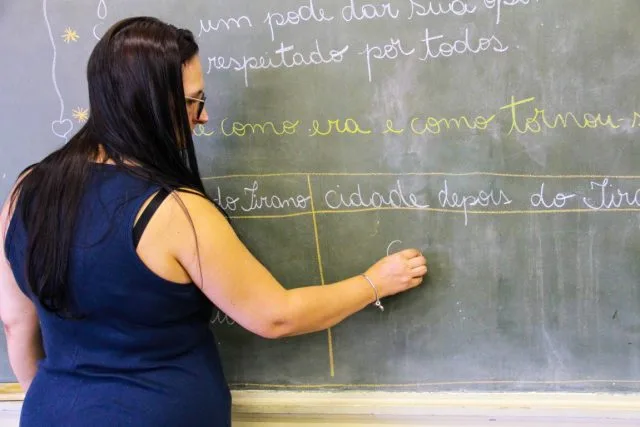 um pode dar sua
respeitado por todos.
e como era e como tornou-s
do Tirano cidade depois do Tira